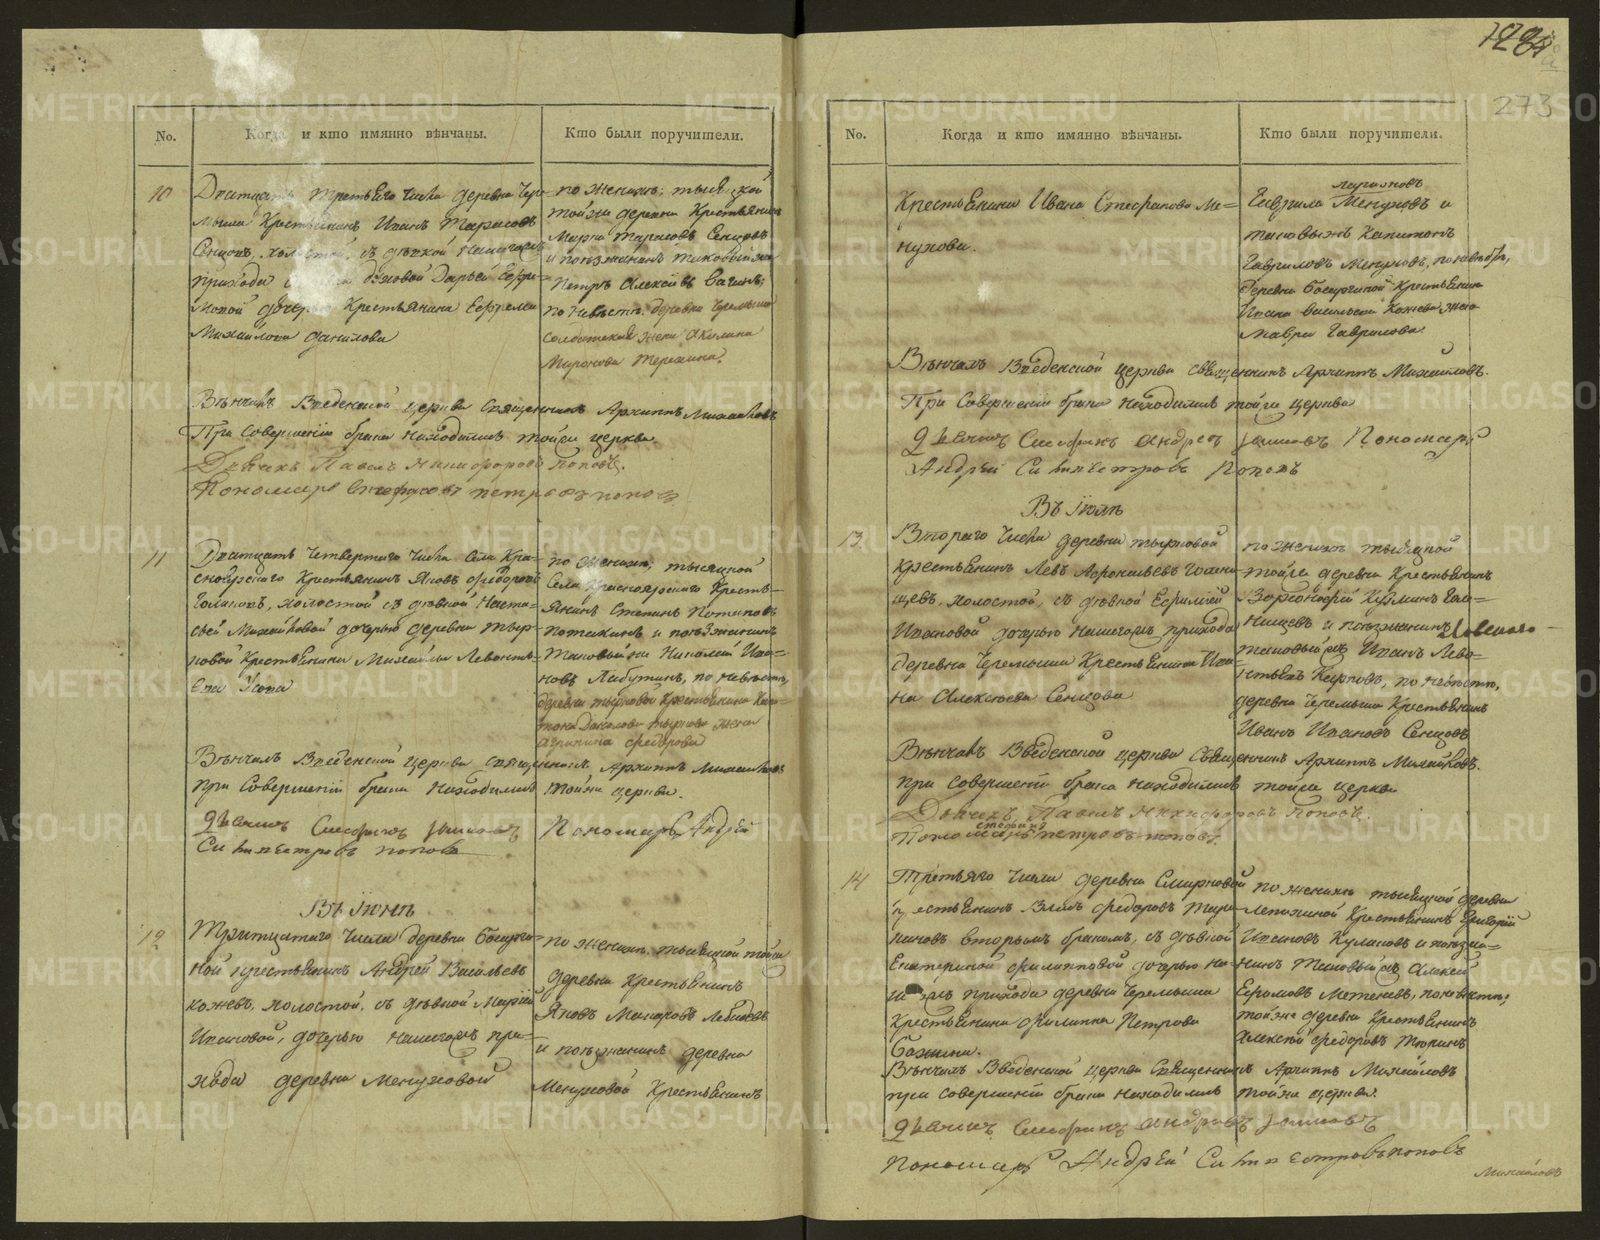 No.
Когда и кто имянно вѣнчаны.
Кто были поручители.
10
Дватцать третьяго числа деревни Чере-
мыша Крестьянинъ Иванъ Тарасовъ
Сенцовъ, холостой, съ дѣвкой нашегожъ
прихода Дарьей Ефре-
мовой дочерью Крестьянина Ефрема
Михайлова Данилова
по женихѣ: тысяцкой
тойже деревни Крестьянинъ
Марко Тарасовъ Сенцовъ
и поезжанинъ таковый же
Петръ Алексѣевъ Вагинъ;
по невѣстѣ: деревни Черемыша
солдатская жена Акилина
Миронова Терехина.
Вѣнчалъ Введенской церкви Священникъ Архиппъ Михайловъ
При совершеніи брака находились тойже церкви
Дьячекъ Павелъ Никифоровъ Поповъ.
Пономарь Стефанъ Петровъ Поповъ
11
Дватцать четвертаго числа села Кра-
сноярскаго Крестьянинъ Яковъ Федоровъ
холостой съ дѣвкой Наста-
сьей Михайловой дочерью деревни Тыр-
ковой Крестьянина Михайлы Леонть-
ева Усова
по женихѣ, тысяцкой
Села Красноярскаго Кресть-
янинъ Степанъ Потаповъ
Потаскинъ и поезжанинъ
таковый же Николай Ива-
новъ Лабутинъ, по невѣстѣ,
деревни Тырковой Крестьянина
жена
Агрипина Федорова
Вѣнчалъ Введенской церкви священникъ Архиппъ Михайловъ
при совершеніи брака находились тойже церкви.
Дьячикъ Стефанъ Пономарь Андрей
Сильвестровъ Поповъ
Въ Іюнѣ
12
Тритцатаго числа деревни Бочурги-
ной крестьянинъ Андрей Васильевъ
Кожевъ, холостой, съ дѣвкой Марьей
Ивановой, дочерью нашегожъ при-
хода деревни Менуховой
по женихѣ, тысяцкой тойже
деревни Крестьянинъ
Яковъ Макаровъ Лебедевъ
и поезжанинъ деревни
Менуховой Крестьянинъ
273
No.
Когда и кто имянно вѣнчаны.
Кто были поручители.
Крестьянина Ивана Стефанова Ме-
нухова.
Гаврила Менуховъ и
таковыжъ Капитонъ
Гавриловъ Менуховъ, по невѣстѣ,
деревни Бочургиной Крестьянина
Ивана Васильева Кожева жена
Мавра Гаврилова.
Вѣнчалъ Введенской церкви священникъ Архиппъ Михайловъ.
При совершеніи брака находились тойже церкви
Дьячикъ Стефанъ Андреевъ Пономарь
Андрей Сильвестровъ Поповъ
Въ Іюлѣ
13.
Втораго числа деревни Тырковой
крестьянинъ Левъ Афонасьевъ Голени-
щевъ, холостой, съ дѣвкой Ефимьей
Ивановой дочерью нашегожъ прихода
деревни Черемыша Крестьянина Ива-
на Алексѣева Сенцова
по женихѣ тысяцкой
тойже деревни Крестьянинъ
Ксенофонтъ Кузминъ Голе-
нищевъ и поезжанинъ
таковый же Иванъ Лево-
нтьевъ Карповъ, по невѣстѣ,
деревни Черемыша Крестьянинъ
Иванъ Ивановъ Сенцовъ
Вѣнчалъ Введенской церкви Священникъ Архиппъ Михайловъ.
при совершеніи брака находились тойже церкви
Дьячекъ Павелъ Никифоровъ Поповъ.
Пономарь Стефанъ Петровъ Поповъ.
14
Третьяго числа деревни Смирновой
крестьянинъ Федоровъ
вторымъ бракомъ, съ дѣвкой
Екатериной Филипповой дочерью на-
шегожъ прихода деревни Черемыша
Крестьянина Филиппа Петрова
Бажина.
по женихѣ тысяцкой деревни
Лепихиной Крестьянинъ Григорій
Ивановъ Кулаковъ и поезжа-
нинъ таковый же Алексѣй
Ефимовъ Метеневъ, по невѣстѣ;
тойже деревни Крестьянинъ
Алексѣй Федоровъ Тюринъ
Вѣнчалъ Введенской церкви Священникъ Архиппъ Михайловъ
при совершеніи брака находились тойже церкви.
Дьячикъ Стефанъ Андреевъ
Пономарь Андрей Сильвестровъ Поповъ
Михайловъ
METRIKI.GASO-URAL.RU